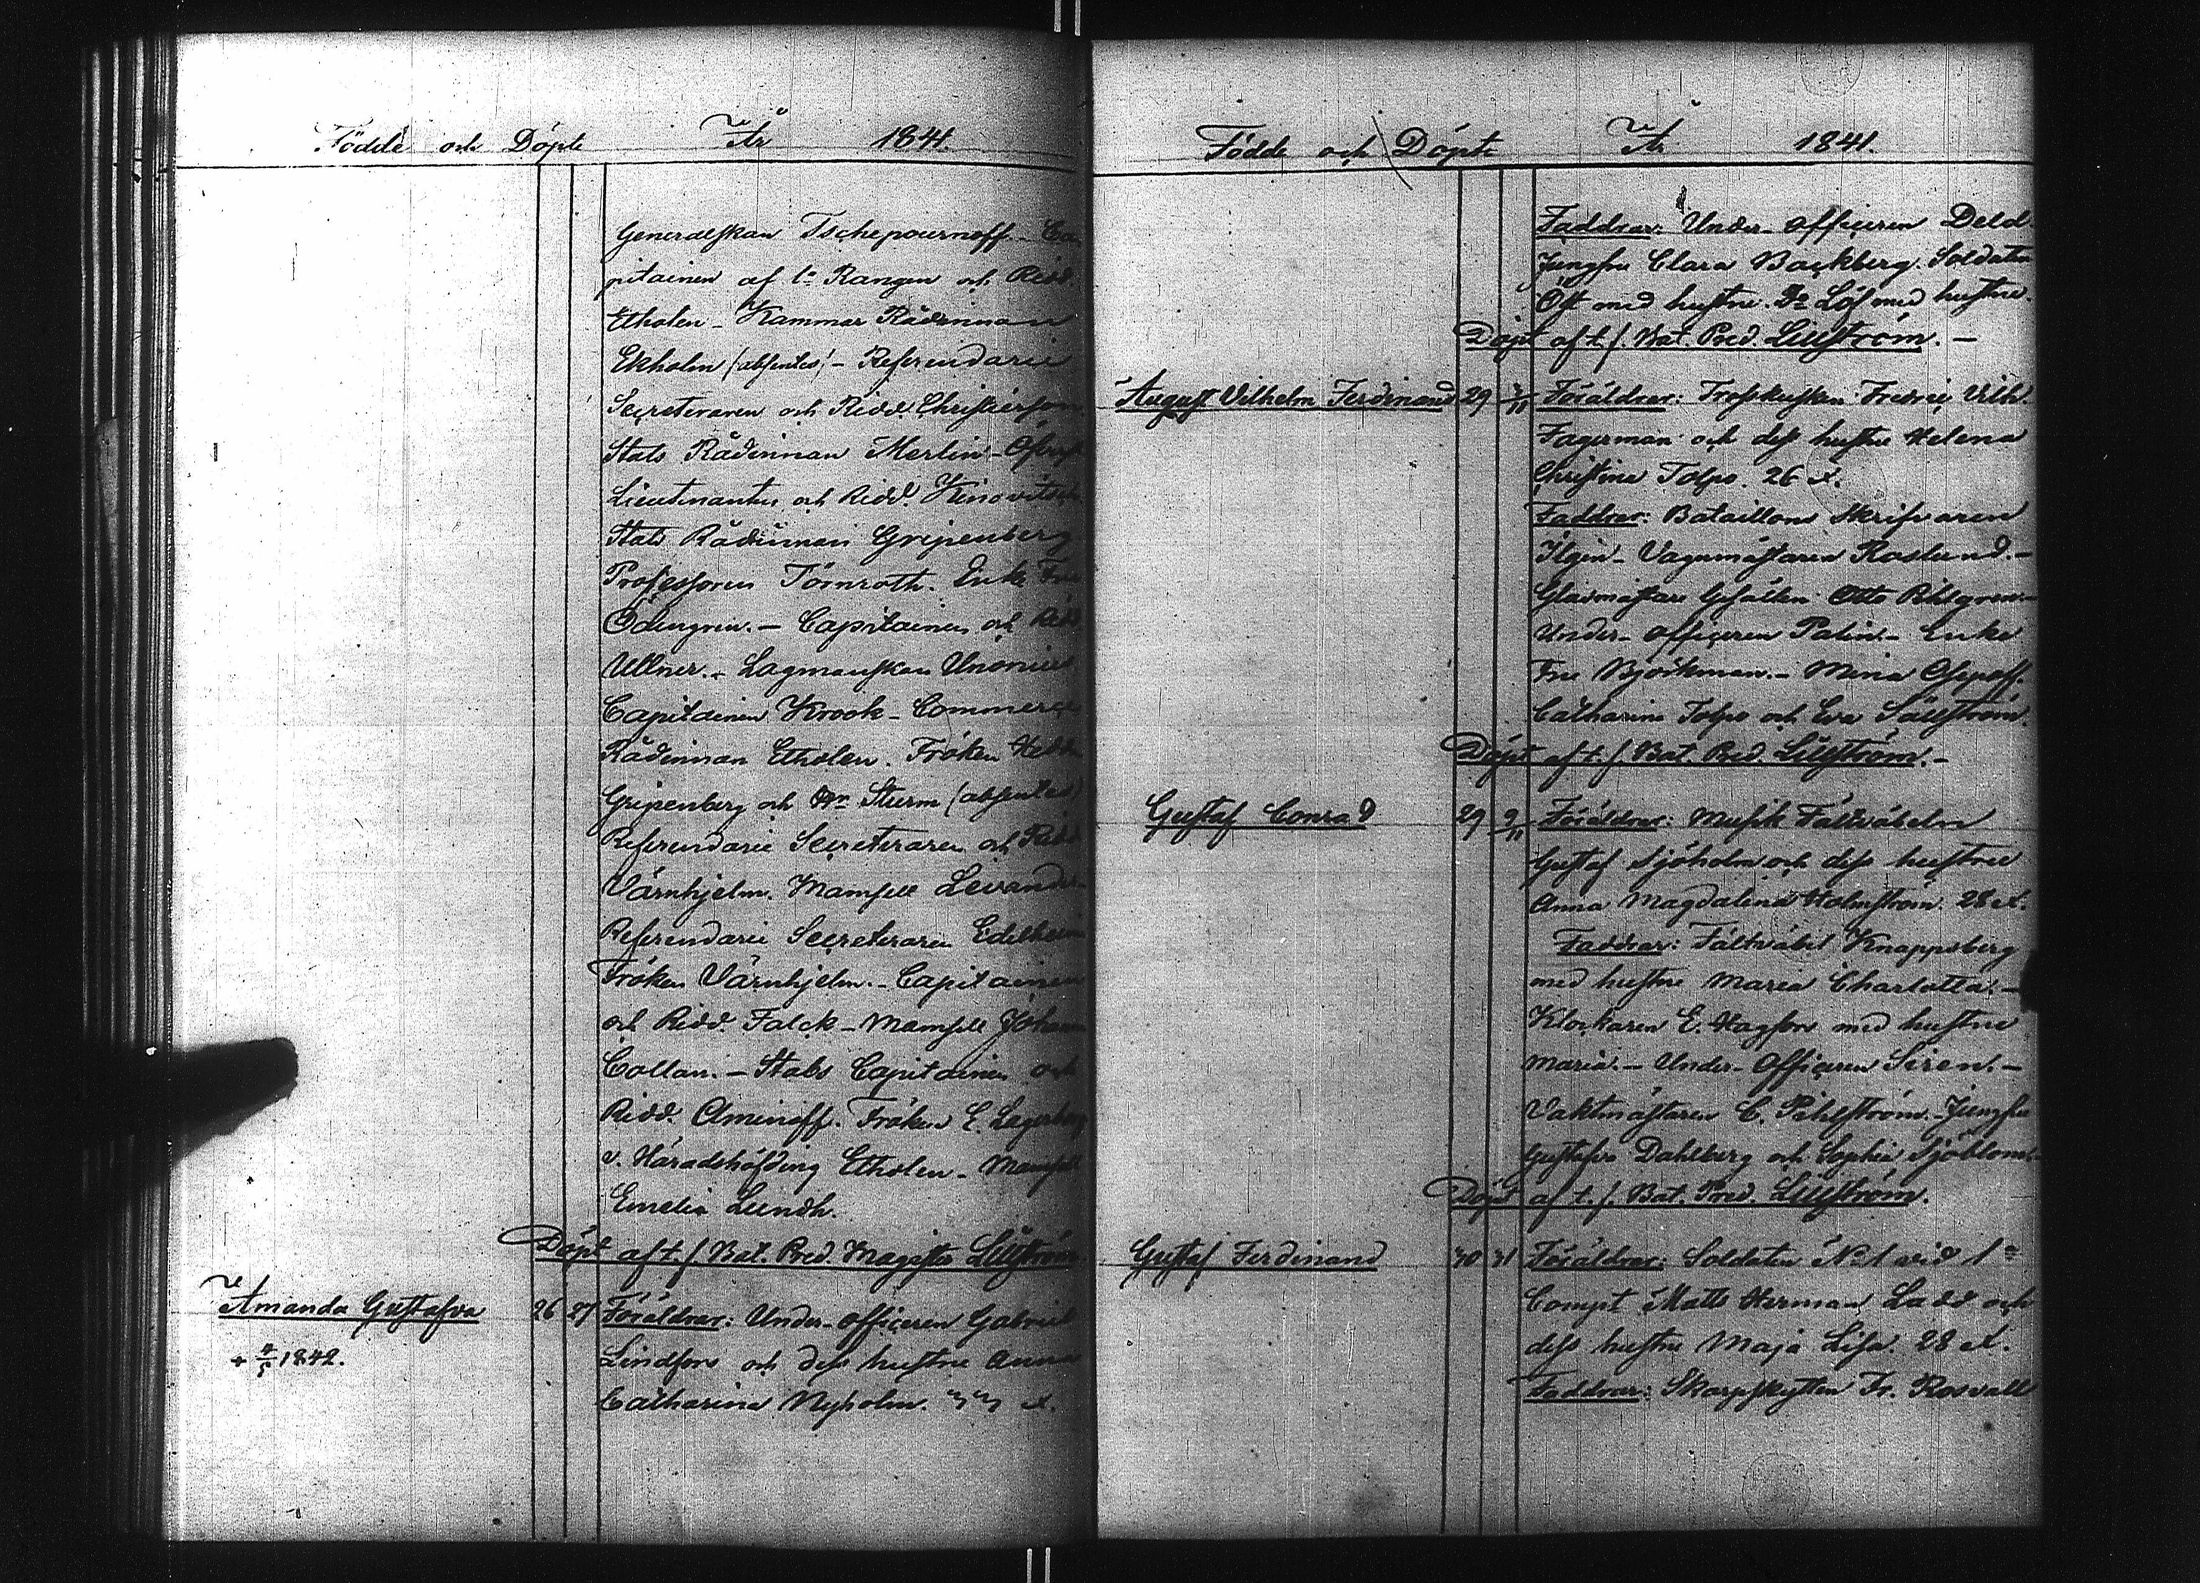 Födde och Döpte År 1841.
Generalskan Tschepournoff - Ca-
pitainen af 1a Rangen och Ridd.
Etholen - Kammar Rådinnan
Ekholm (absentes) - Referendarie
Secreteraren och Ridd. Christierson
Stats Rådinnan Merlin - Öfverst
Lieutnanten och Ridd. Kinovitsch
Stats Rådinnan Gripenberg
Professoren Törnroth. Enke Fru
Ödengren. - Capitainen och Ridd.
Ullner. - Lagmanskan Unonius
Capitainen Krook - Commerce
Rådinnan Etholen. Fröken Hedda
Gripenberg och Sturm (absentes)
Referendarie Secreteraren och Ridd
Värnhjelm. Mamsell Levander
Referendarie Secreteraren Edelheim
Fröken Värnhjelm. - Capitainen
och Ridd. Falck - Mamsell Johanna
Collan. - Stabs Capitainen och
Ridd. Aminoff. Fröken E. Lagerborg
v. Häradshöfding Etholen - Mamsell
Emelia Lundh.
Döpt af t. f. Bat. Pred. Magister Lillström
Amanda Gustafva 26 27 Föräldrar: Under-officeren Gabriel
+ 4/5 1842. Lindfors och dess hustru Anna
Catharina Nyholm. 33 å.
Födde och Döpte År 1841.
Faddrar: Under-officeren Deld-
Jungfru Clara Backberg. Soldaten
Öst med hustru. Do Löf med hustru.
Döpt af t. f. Bat. Pred. Lillström. -
August Vilhelm Ferdinand 29 2/11 Föräldrar: Trosskusken Fredric Vilh.
Fagerman och dess hustru Helena
Christina Tolpo. 26 å.
Faddrar: Bataillons Skrifvaren
Ilgin - Vagnmästaren Roslund. -
Glasmästare Gesällen Otto Blisgren -
Under-officeren Palin - Enke
Fru Björkman. - Mina Osipoff.
Catharina Tolpo och Eva Sällström.
Döpt af t. f. Bat. Pred. Lillström. -
Gustaf Conrad 29 9/11 Föräldrar: Musik Fältväbeln
Gustaf Sjöholm och dess hustru
Anna Magdalena Holmström. 28 å.
Faddrar: Fältväbel Knappsberg
med hustru Maria Charlotta. -
Klockaren E. Hagfors med hustru
Maria. - Under-Officeren Siren. -
Vaktmästaren C. Pihlström. - Jungfru
Gustafva Dahlberg och Sophia Sjöblom.
Döpt af t. f. Bat. Pred. Lillström.
Gustaf Ferdinand 30 31 Föräldrar: Soldaten No 1 vid 1a
Compt Matts Herman Ladd och
dess hustru Maja Lisa. 28 å.
Faddrar: Skarpskytten Fr. Rosvall